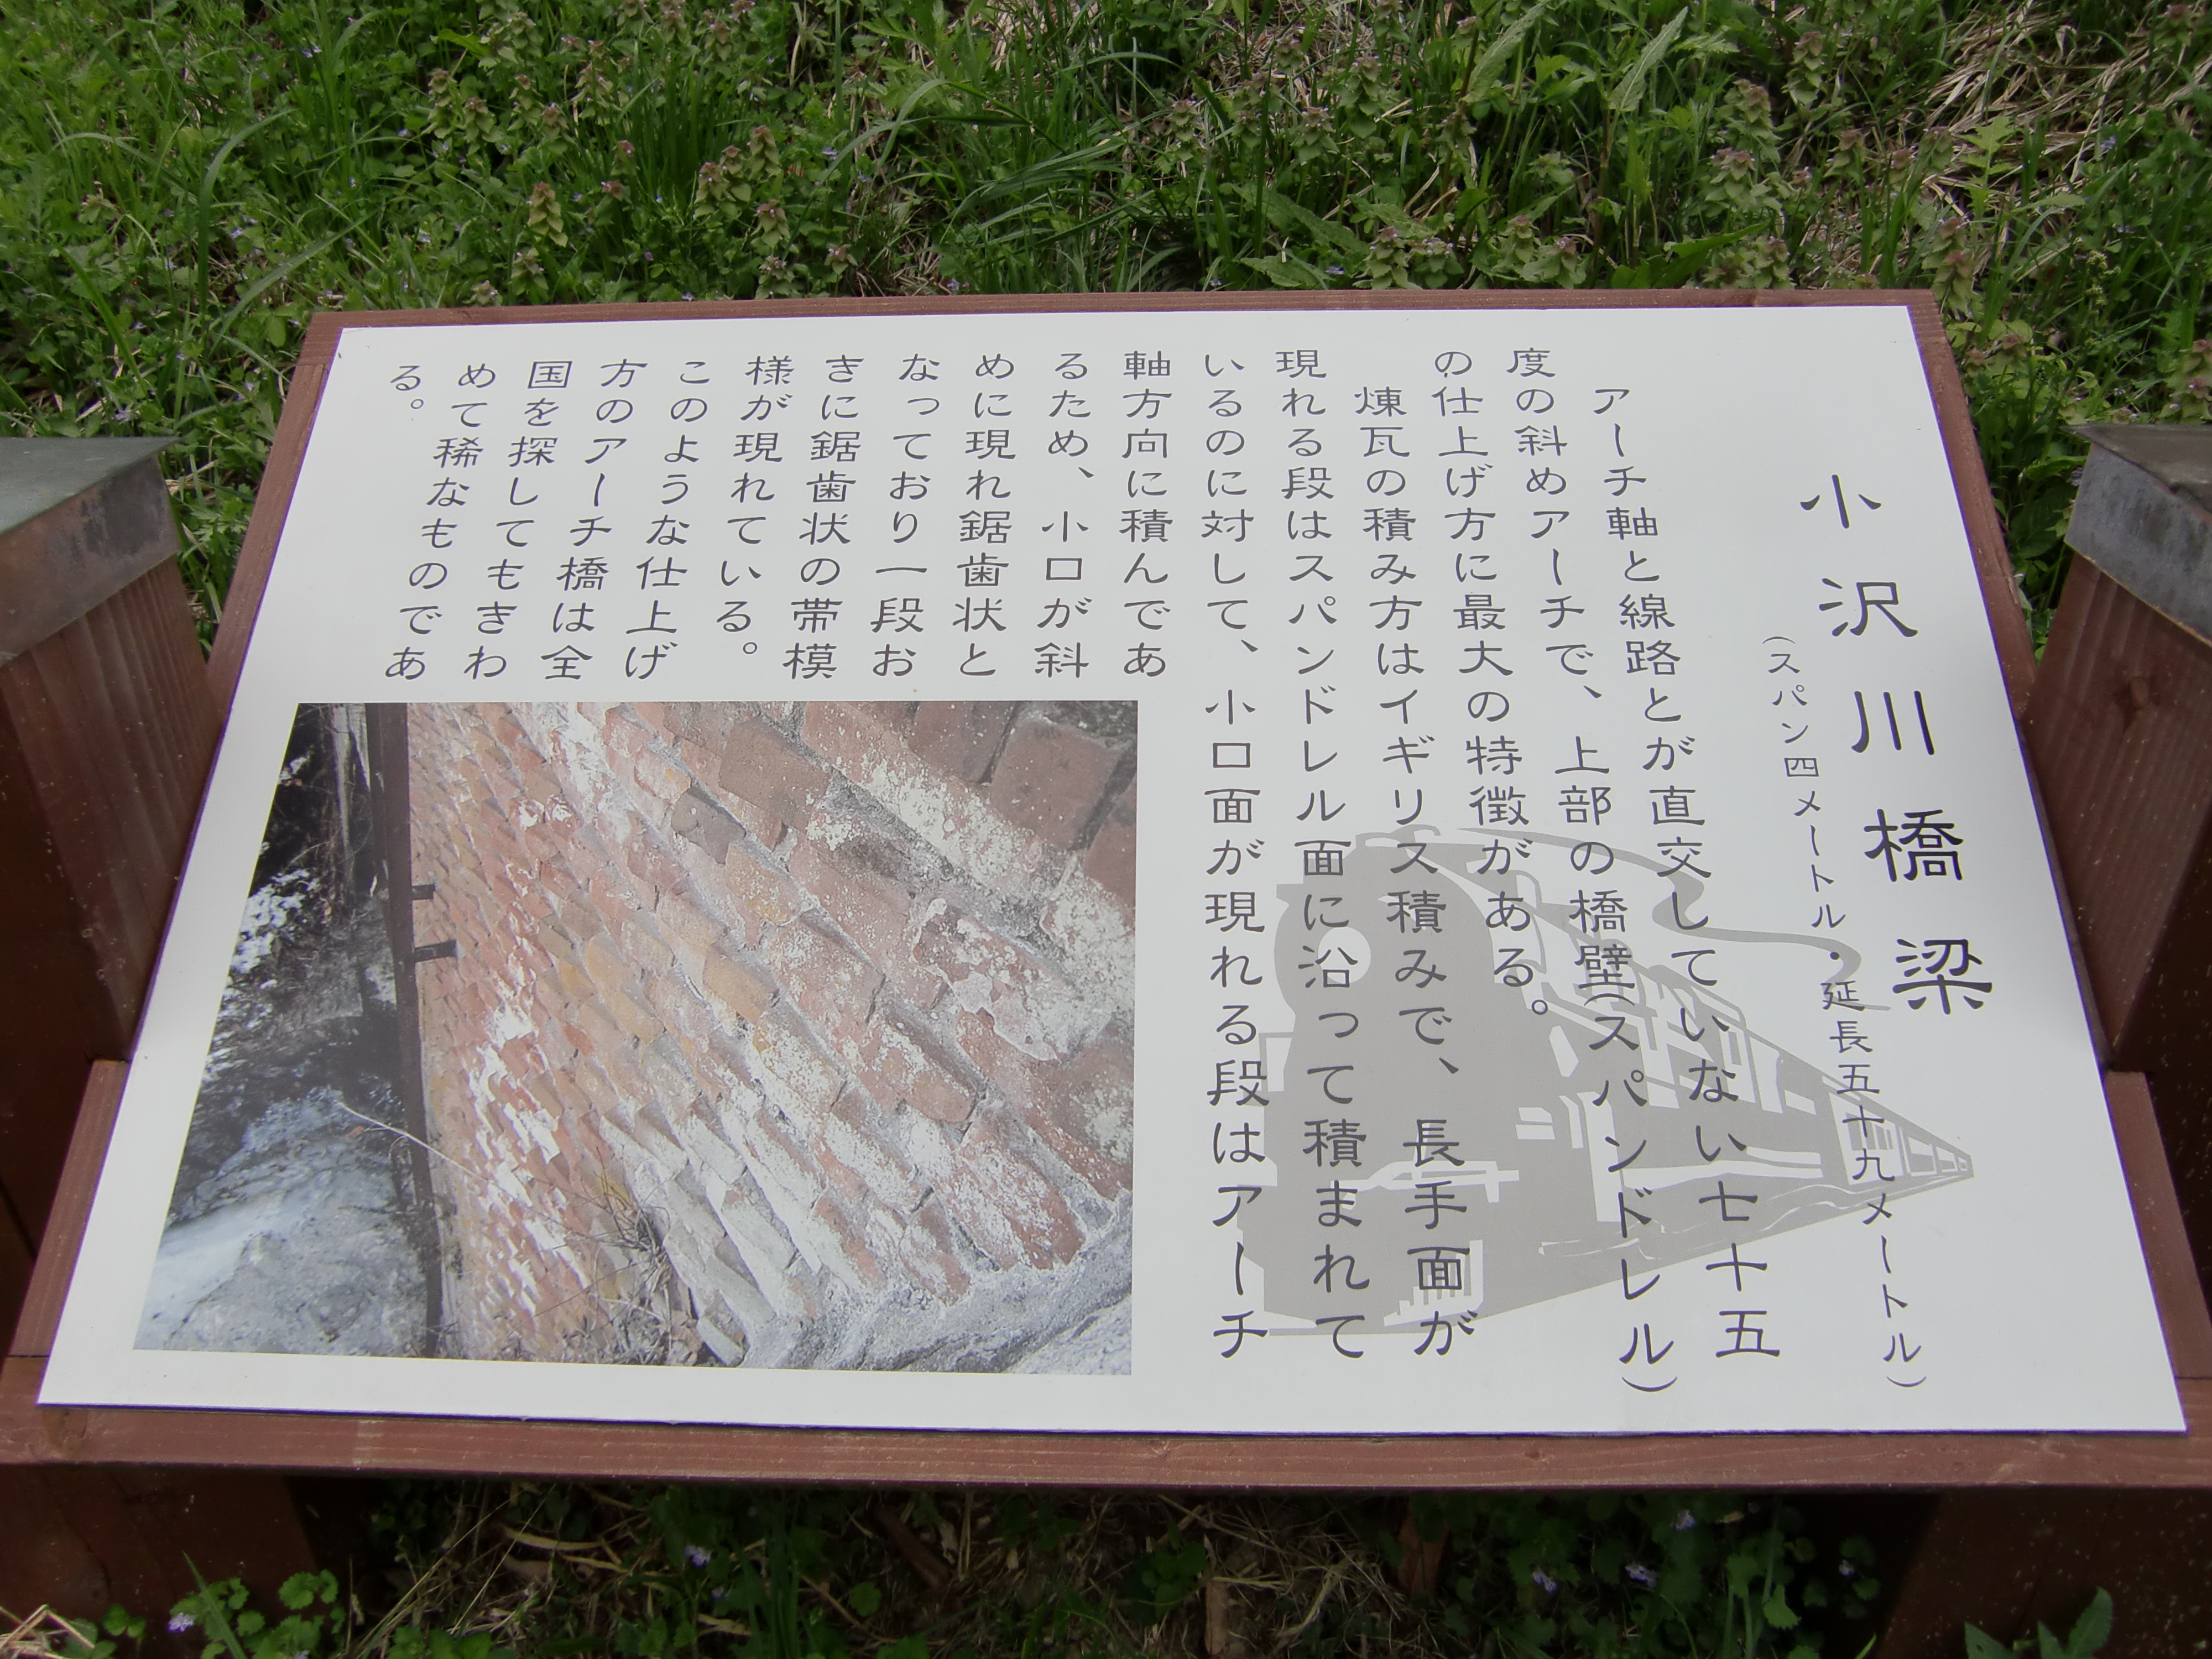 小沢川橋梁
（スパン四メートル・延長五十九メートル）
アーチ軸と線路とが直交していない七十五
度の斜めアーチで、上部の橋壁（スパンドレル）
の仕上げ方に最大の特徴がある。
煉瓦の積み方はイギリス積みで、長手面が
現れる段はスパンドレル面に沿って積まれて
いるのに対して、小口面が現れる段はアーチ
軸方向に積んであ
るため、小口が斜
めに現れ鋸歯状と
なっており一段お
きに鋸歯状の帯模
様が現れている。
このような仕上げ
方のアーチ橋は全
国を探してもきわ
めて稀なものであ
る。